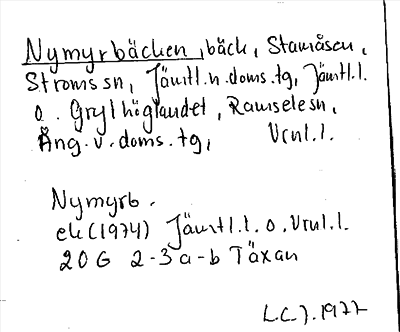 Nymyrbäcken, bäck, Stamåsen,
Ströms sn, Jämtl. n. doms. tg, Jämtl. l.
o. Gryl höglandet, Ramsele sn,
Ång. v. doms. tg, Vrnl. l.
Nymyrb.
ek (1974) Jämtl. l. o. Vrnl. l.
20 G 2-3 a-b Täxan
L.C.J. 1977